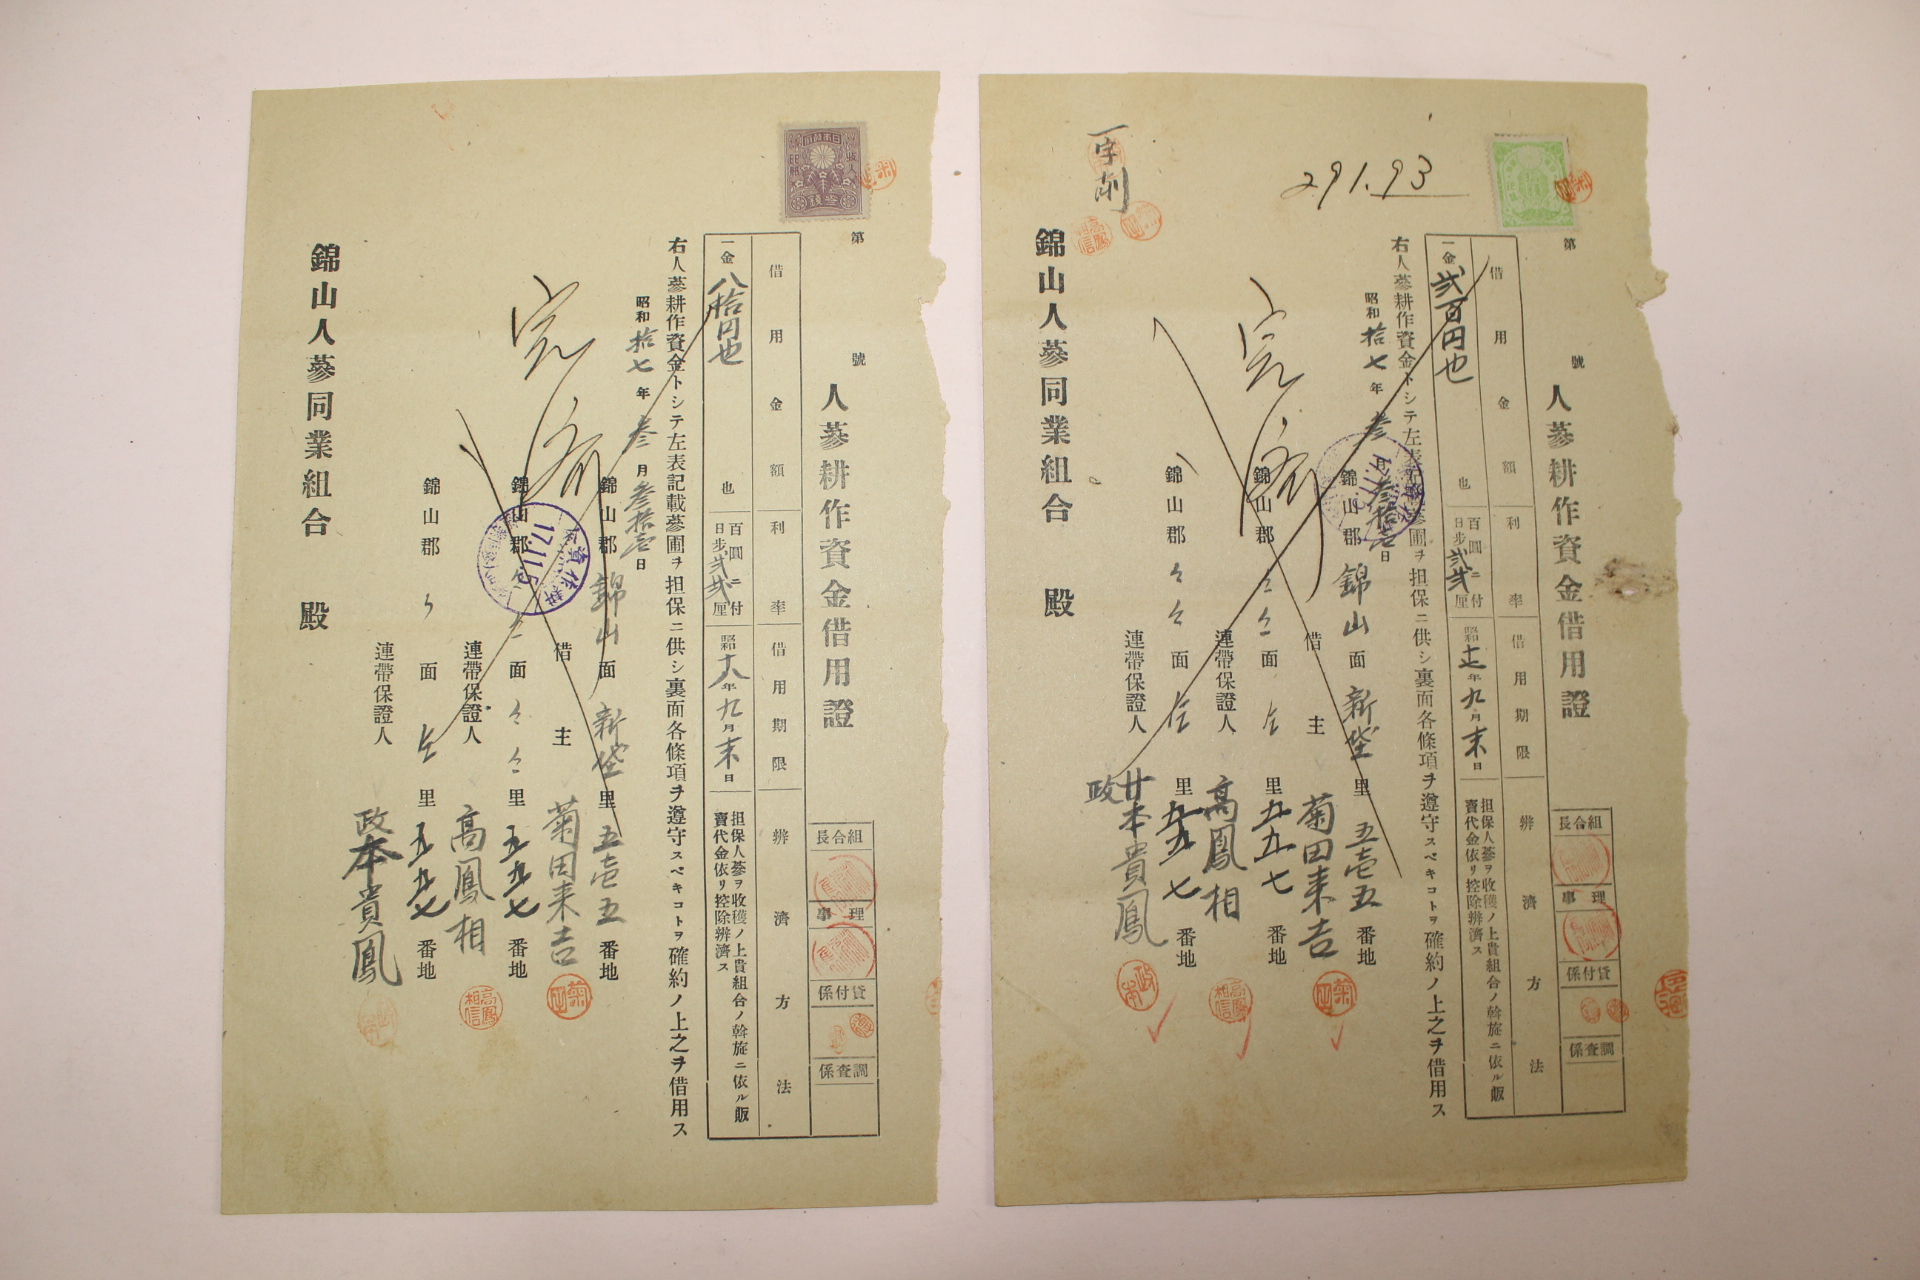 291.93
一字削
第 號
人蔘耕作資金借用證
組合長
理事
貸付係
調査係
借用金額
利率
借用期限
辨濟方法
一金貳百円也 也
百圓ニ付
日步貳貳厘
昭和 年九月末日
担保人蔘ヲ收穫ノ上貴組合ノ斡旋ニ依ル販
賣代金依リ控除辨濟ス
右人蔘耕作資金トシテ左表記載蔘圃ヲ担保ニ供シ裏面各條項ヲ遵守スベキコトヲ確約ノ上之ヲ借用ス
昭和拾七年叁月叁拾壱日
錦山郡錦山面新垈里五壱五番地
借主 菊田来吉
錦山郡 面 里五九七番地
連帶保證人 高鳳相
錦山郡 面 里五九七番地
連帶保證人 政本貴鳳
完
錦山人蔘同業組合 殿
第 號
人蔘耕作資金借用證
組合長
理事
貸付係
調査係
借用金額
利率
借用期限
辨濟方法
一金八拾円也 也
百圓ニ付
日步貳貳厘
昭和十八年九月末日
担保人蔘ヲ收穫ノ上貴組合ノ斡旋ニ依ル販
賣代金依リ控除辨濟ス
右人蔘耕作資金トシテ左表記載蔘圃ヲ担保ニ供シ裏面各條項ヲ遵守スベキコトヲ確約ノ上之ヲ借用ス
昭和拾七年叁月叁拾壱日
錦山郡錦山面新垈里五壱五番地
借主 菊田来吉
錦山郡 面 里五九七番地
連帶保證人 高鳳相
錦山郡 面 里五九七番地
連帶保證人 政本貴鳳
17.11.5
完
錦山人蔘同業組合 殿